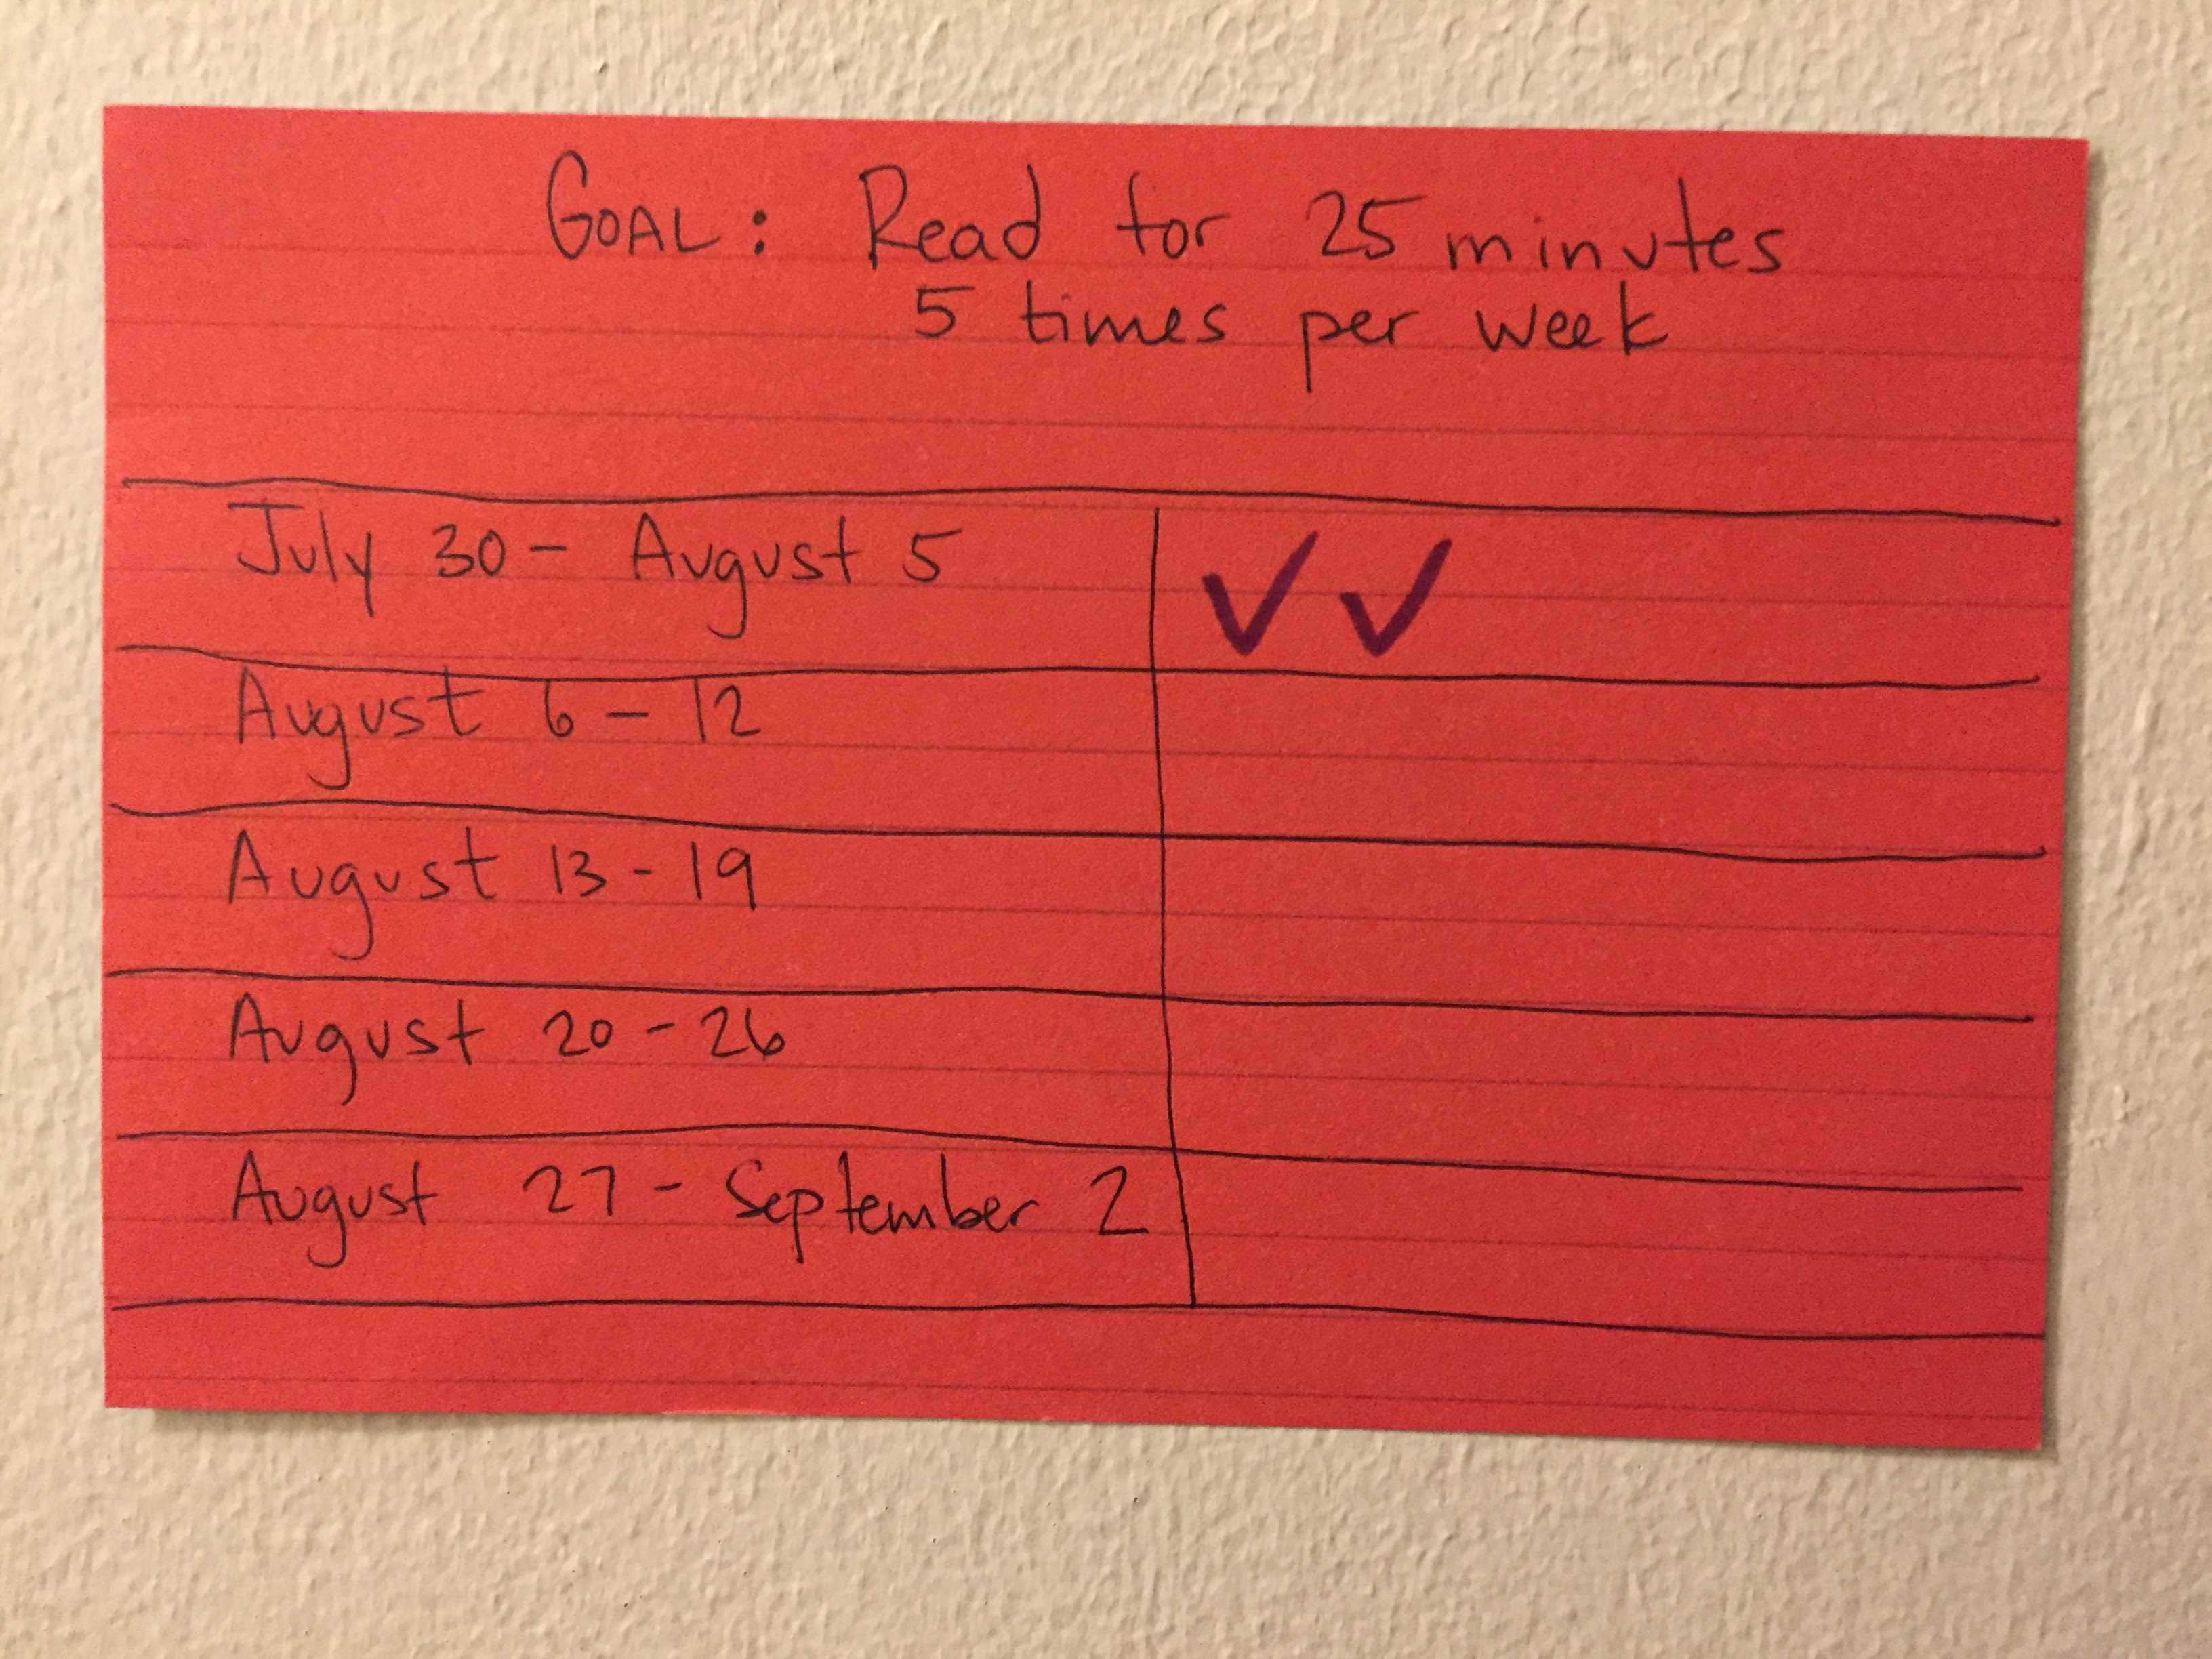 GOAL: Read for 25 minutes
5 times per week
July 30 - August 5 ✓ ✓
August 6 - 12
August 13 - 19
August 20 - 26
August 27 - September 2